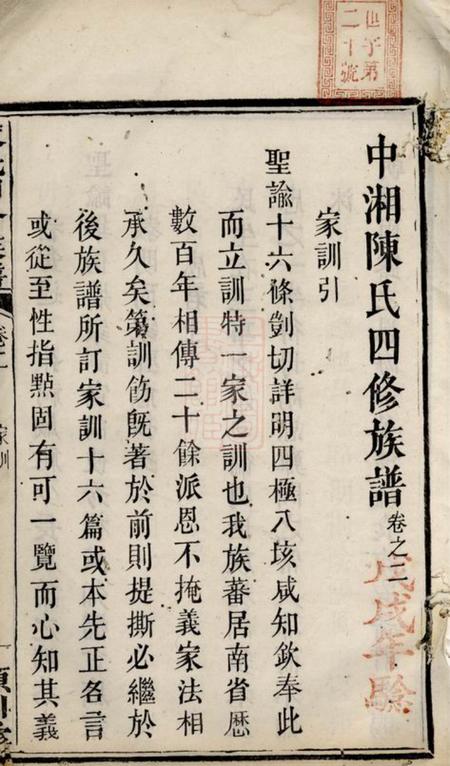 中湘陳氏四修族譜卷之二
家訓引
聖諭十六條剴切詳明四極八垓咸知欽奉此
而立訓特一家之訓也我族蕃居南省歷
數百年相傳二十餘派恩不掩義家法相
承久矣第訓飭既著於前則提撕必繼於
後族譜所訂家訓十六篇或本先正名言
或從至性指點固有可一覽而心知其義
戊戌年驗
第
二十號
家訓